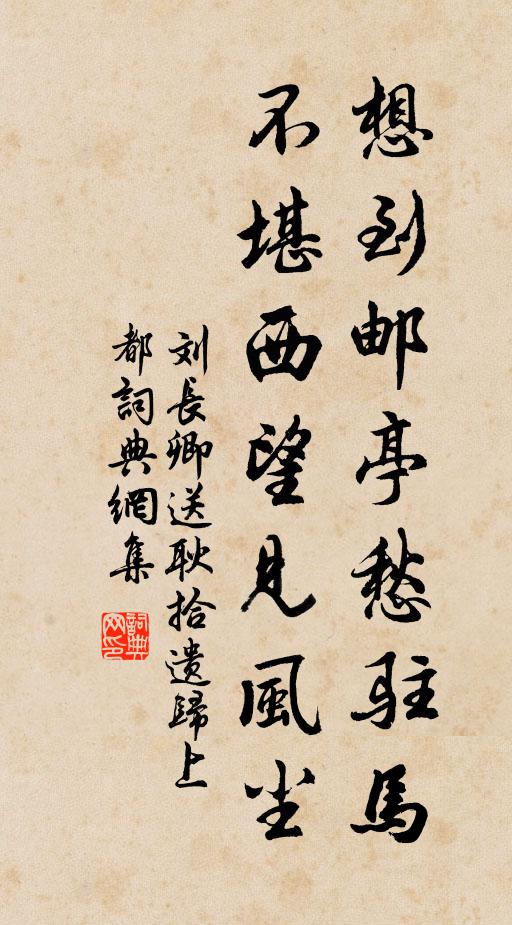 想到邮亭愁驻馬
不堪西望見風尘
刘長卿送耿拾遗歸上
都詞典網集
詞典网印